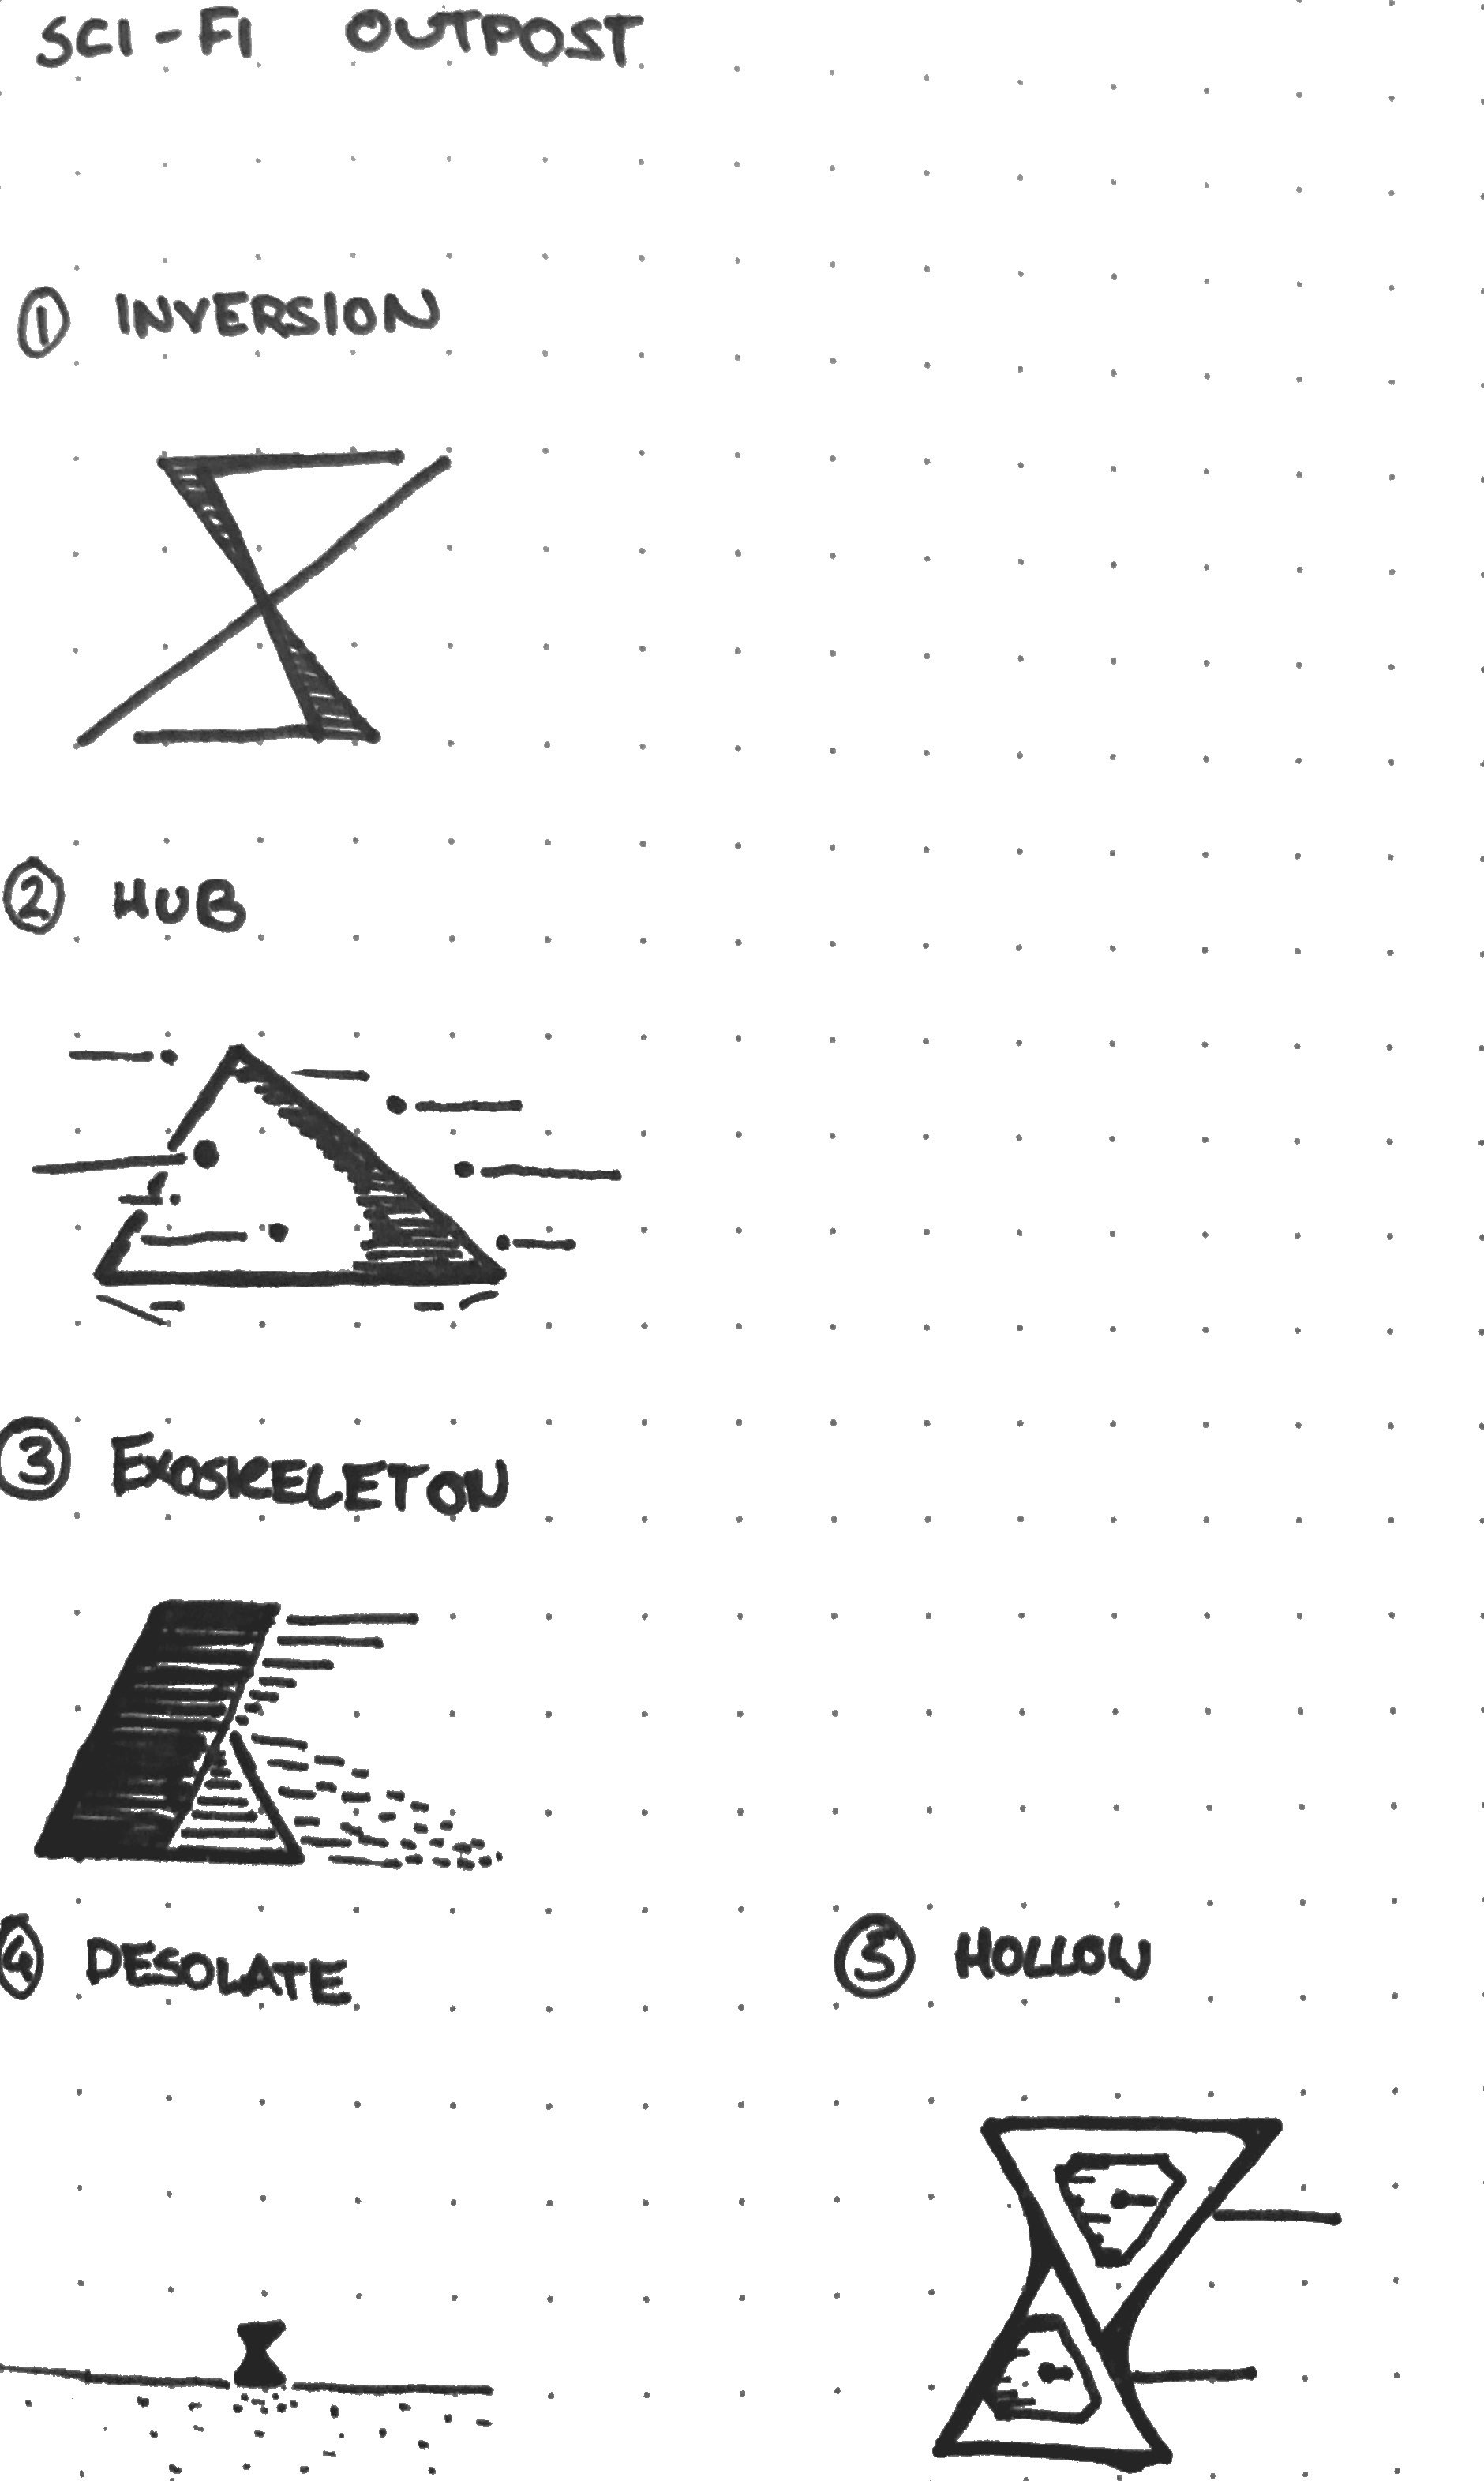 SCI-FI OUTPOST
① INVERSION
② HUB
③ EXOSKELETON
④ DESOLATE
⑤ HOLLOW